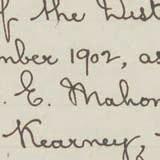 of the Dist
mber 1902, as
. E. Mahon
Kearney,